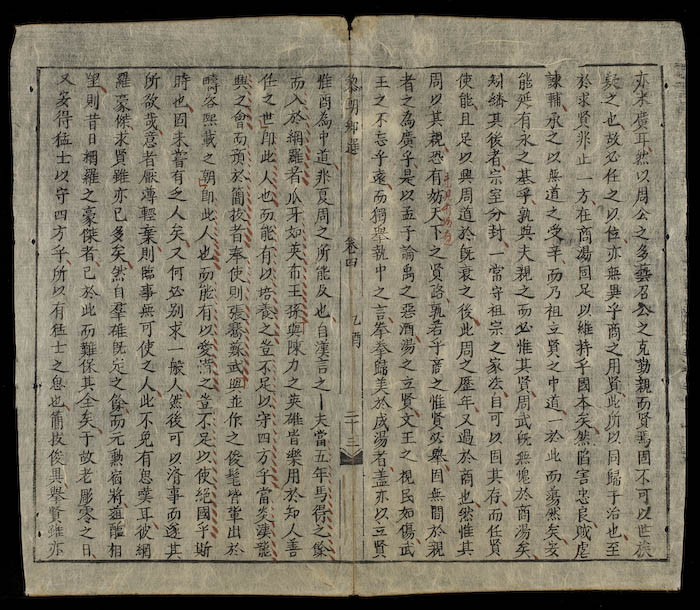 亦未廣耳然以周公之多藝召公之克勤親而賢焉固不可以世族
疑之也故必任之以位亦無異乎商之用賢此所以同歸于治也至
於求賢非止一方在商湯固足以維持乎國本矣然陷害忠良賊虐
諫輔承之以無道之受辛而乃祖立賢之中道一於此而蕩然矣安
能延有永之基乎孰與夫親之而必惟其賢周武旣無愧於商湯矣
矧繼其後者宗室分封一當守祖宗之家法自可以因其存而任賢
使能且足以興周道於旣衰之後此周之歷年又過於商也然惟其
周以其親恐有妨天下之賢路孰若乎商之惟賢必舉固無間於親
者之為廣乎是以孟子論禹之惡酒湯之立賢文王之視民如傷武
王之不忘乎遠而獨舉執中之言拳拳歸美於成湯者盖亦以立賢
黎朝鄉選 卷四 乙酉 二十三
惟商為中道非夏周之所能及也自漢言之一夫當五年馬得之餘
而入於網羅者爪牙如英布王孫與陳力之英雄皆樂用於知人善
任之世即此人也而能有以培養之豈不足以守四方乎當炎漢龍
興之會而預於簡拔者奉使則張騫蘇武與並作之俊髦皆輩出於
疇咨熙載之朝即此人也而能有以愛惜之豈不足以使絶國乎斯
時也固未嘗有乏人矣又何必别求一般人然後可以濟事而遂其
所欲哉意者厭薄輕棄則臨事無可使之人此不免有思嘆耳彼網
羅豪傑求賢雖亦已多矣然自羣雄旣定之餘而元勳宿將葅醢相
望則昔日網羅之豪傑者已於此而難保其全矣于故老彫零之日
又安得猛士以守四方乎所以有猛士之思也簡拔俊異舉賢雖亦